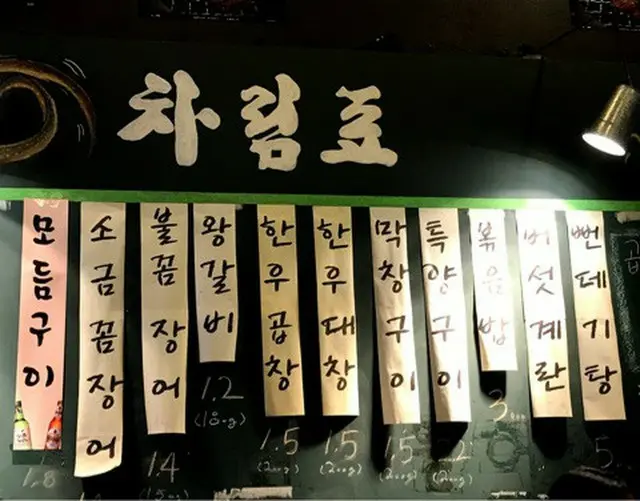 차림표
모듬구이
소금꼼장어
불꼼장어
왕갈비
한우곱창
한우대창
막창구이
특양구이
볶음밥
버섯계란
뻔데기탕
1.8
1.4
1.2
1.5
(200g)
1.5
(200g)
1.5
(200g)
3
5